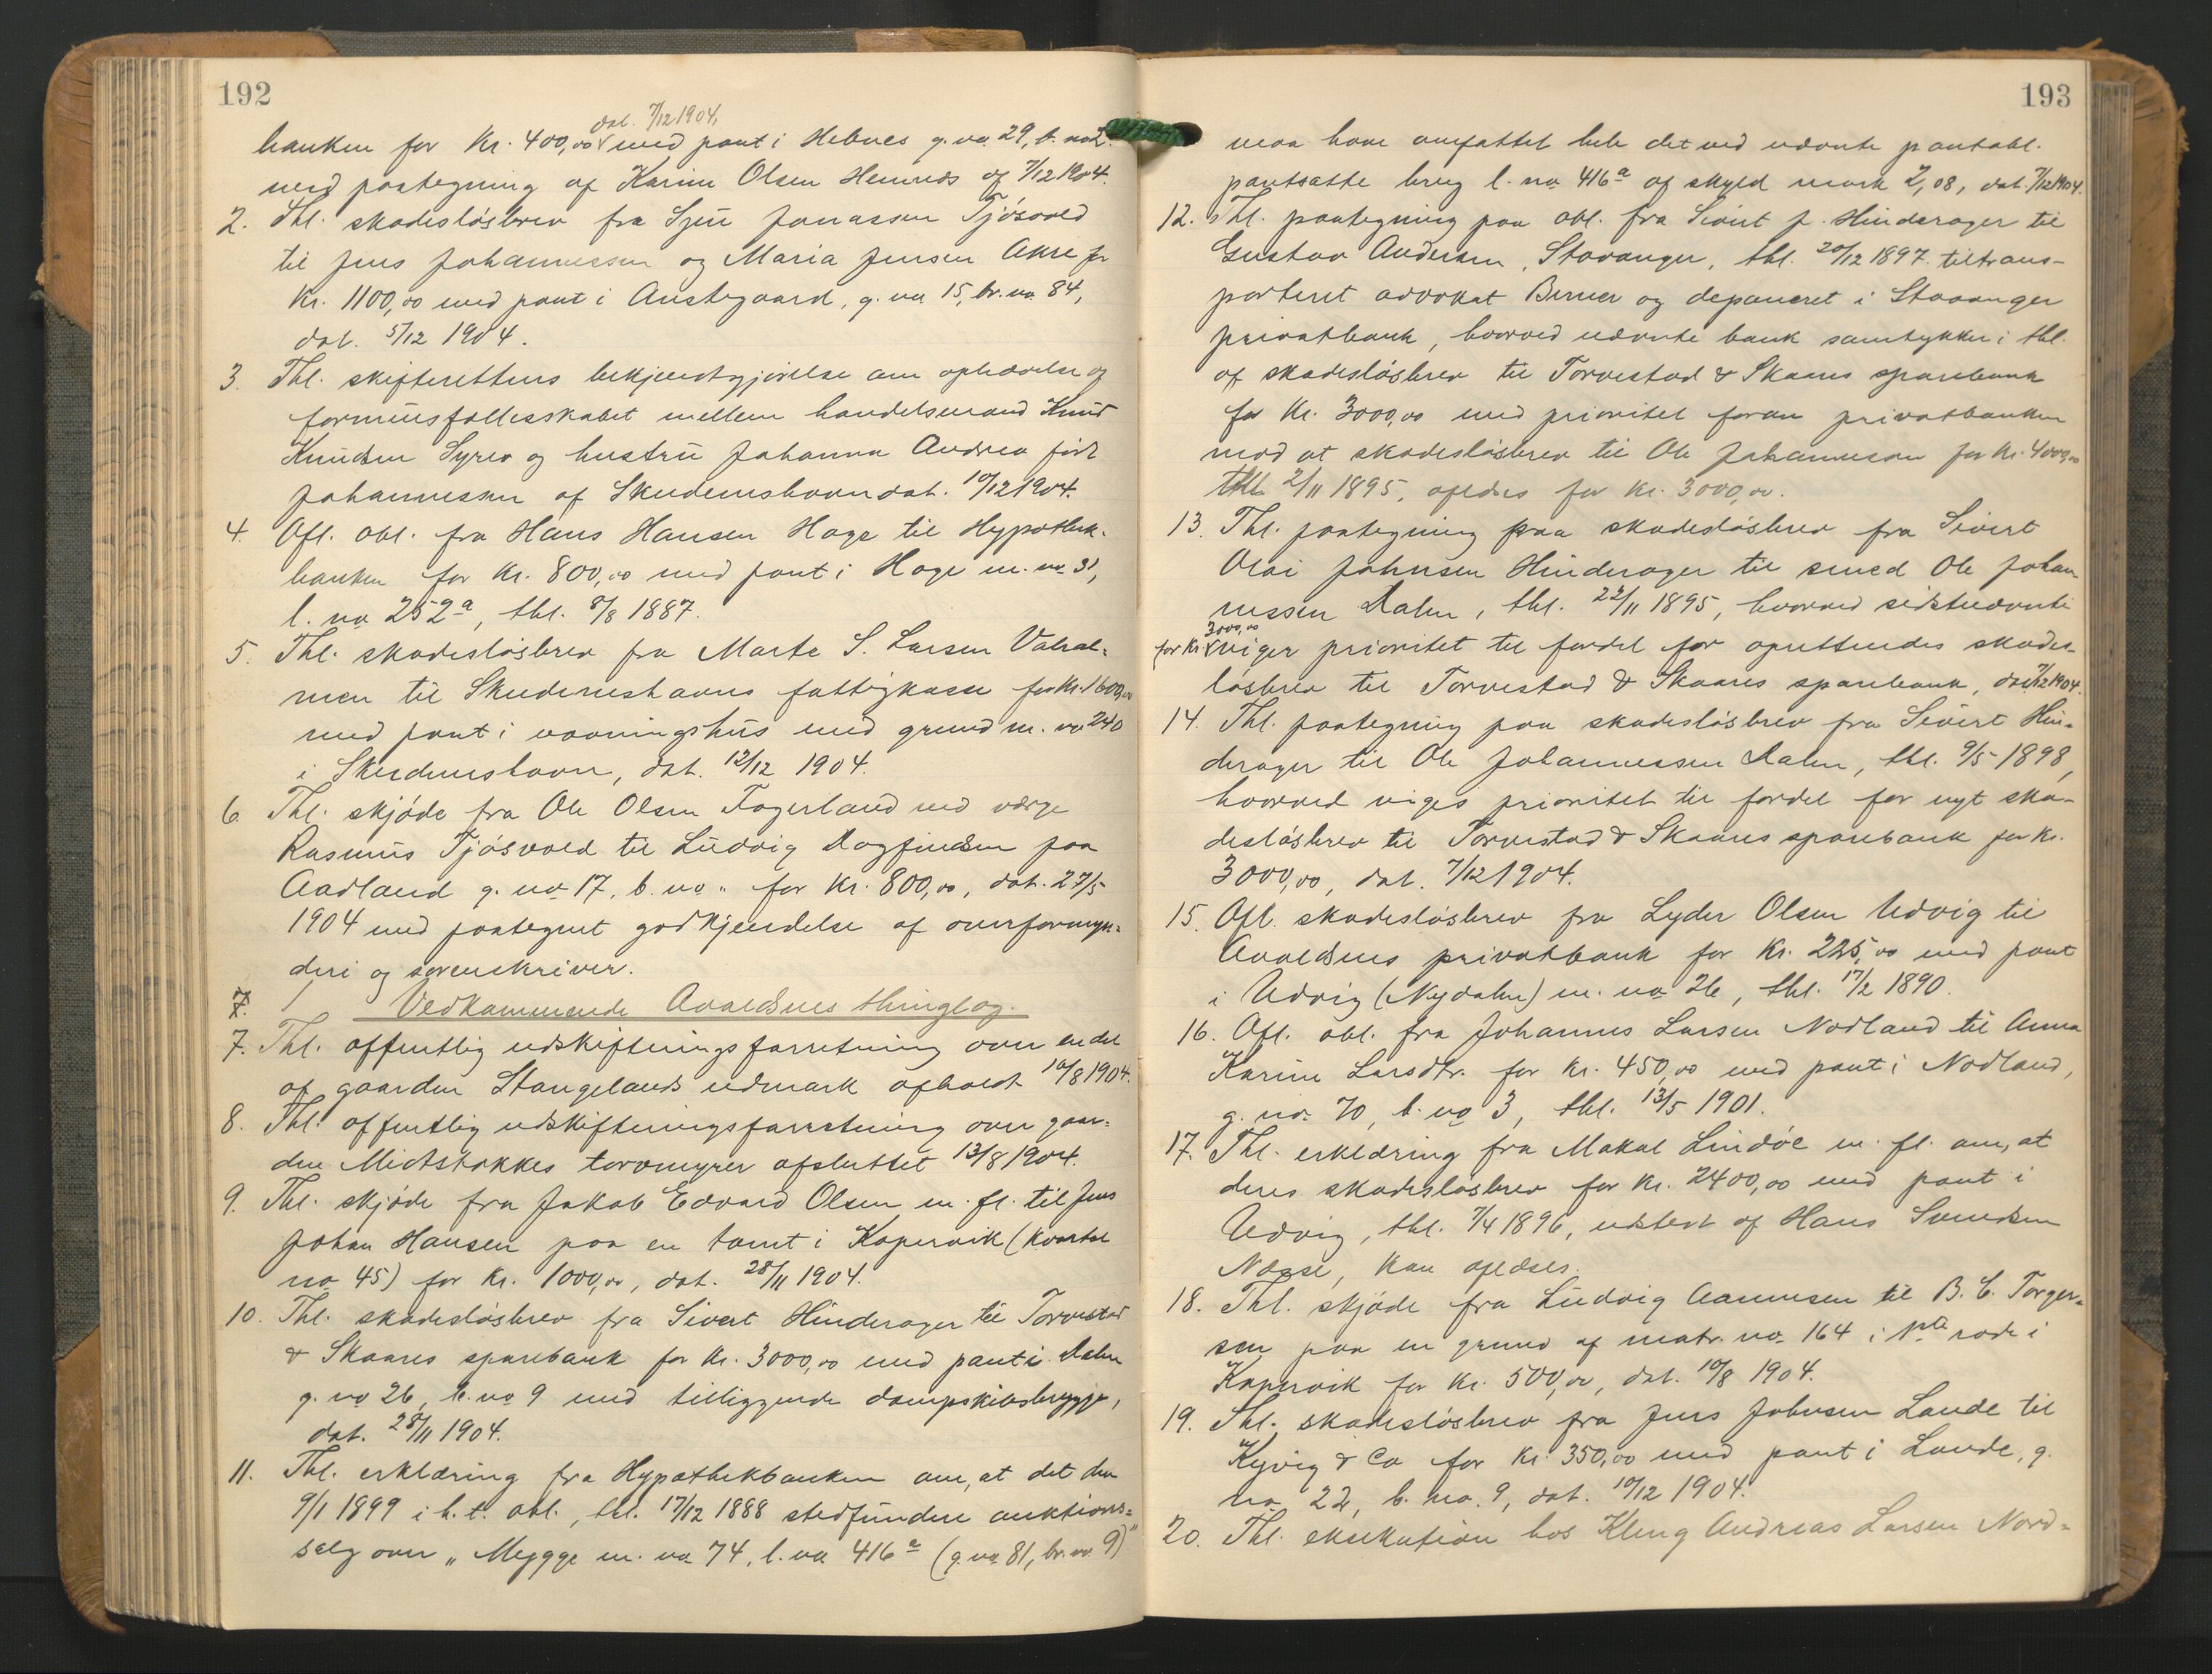 192
dat. 7/12 1904,
banken for Kr. 400,00 med pant i Hebnes g. no 29, b. no 2.
med paategning af Karine Olsen Hemnes af 7/12 1904.
2. Thl. skadesløsbrev fra Sjur Jonassen Tjøsvold
til Jens Johannessen og Maria Jensen Akre for
Kr. 1100,00 med pant i Austegaard, g. no 15, br. no 84,
dat. 5/12 1904.
3. Thl. skifterettens bekjendtgjørelse om ophævelse og
formuesfællesskabet mellem handelsmand Knud
Knudsen Syre og hustru Johanna Andrea født
Johannessen af Skudeneshavn dat. 10/12 1904.
4. Afl. obl. fra Hans Hansen Hage til Hypothek-
banken for Kr. 800,00 med pant i Hage m. no 31,
l. no 252a, thl. 8/8 1887.
5. Thl. skadesløsbrev fra Marte S. Larsen Vahal-
men til Skudeneshavns fattigkasse for Kr. 1600,00
med pant i vaaningshus med grund m. no 240
i Skudeneshavn, dat. 12/12 1904.
6. Thl. skjøde fra Ole Olsen Fagerland med værge
Rasmus Tjøsvold til Ludvig Dagfindsen paa
Aadland g. no 17, b. no „ for Kr. 800,00, dat. 27/5
1904 med paategnet godkjendelse af overformyn-
deri og sorenskriver.
7.
Vedkommende Avaldsnes thinglag.
7. Thl. offentlig udskiftningsforretning over en del
af gaarden Stangelands udmark afholdt 10/8 1904.
8. Thl. offentlig udskiftningsforretning over gaar-
den Midtstokkes torvmyrer afsluttet 13/8 1904.
9. Thl. skjøde fra Jakob Edvard Olsen m. fl. til Jens
Johan Hansen paa en tomt i Kopervik (kvartal
no 45) for Kr. 1000,00, dat. 28/11 1904.
10. Thl. skadesløsbrev fra Sivert Hinderager til Torvestad
& Skaares sparebank for Kr. 3000,00 med pant i Dalen
g. no 26, b. no 9 med tilliggende dampskibsbrygge,
dat. 28/11 1904.
11. Thl. erklæring fra Hypothekbanken om, at det den
9/1 1899 i h. t. obl., thl. 17/12 1888 stedfundne auktions-
salg over „Mygge m. no 74, l. no 416a (g. no 81, br. no 9)"
193
maa have omfattet hele det ved nævnte pantobl.
pantsatte brug l. no 416a af skyld mark 2,08, dat. 7/12 1904.
12. Thl. paategning paa obl. fra Sivert J. Hinderager til
Gustav Andersen, Stavanger, thl. 20/12 1897 tiltrans-
porteret advokat Berner og deponeret i Stavanger
privatbank, hvorved nævnte bank samtykker i thl.
af skadesløsbrev til Torvestad & Skaares sparebank
for Kr. 3000,00 med prioritet foran privatbanken
mod at skadesløsbrev til Ole Johannessen for Kr. 4000,00
thl. 2/11 1895, aflæses for Kr. 3000,00.
13. Thl. paategning paa skadesløsbrev fra Sivert
Olai Johnsen Hinderager til smed Ole Johan-
nessen Dalen, thl. 22/11 1895, hvorved sidstnævnte
3000,00
for Kr. viger prioritet til fordel for oprettendes skades-
løsbrev til Torvestad & Skaares sparebank, dat. 7/12 1904.
14. Thl. paategning paa skadesløsbrev fra Sivert Hin-
derager til Ole Johannessen Dalen, thl. 9/5 1898,
hvorved viges prioritet til fordel for nyt ska-
desløsbrev til Torvestad & Skaares sparebank for Kr.
3000,00, dat. 7/12 1904.
15. Afl. skadesløsbrev fra Lyder Olsen Udvig til
Avaldsnes privatbank for Kr. 225,00 med pant
i Udvig (Nydalen) m. no 26, thl. 17/2 1890.
16. Afl. obl. fra Johannes Larsen Nodland til Anna
Karine Larsdtr. for Kr. 450,00 med pant i Nodland,
g. no 70, b. no 3, thl. 13/5 1901.
17. Thl. erklæring fra Makal Lindøe m. fl. om, at
deres skadesløsbrev for Kr. 2400,00 med pant i
Udvig, thl. 7/4 1896, udstedt af Hans Svendsen
Nesse, kan aflæses.
18. Thl. skjøde fra Ludvig Aamnsen til B. C. Torger-
sen paa en grund af matr. no 164 i 1ste rode i
Kopervik for Kr. 500,00, dat. 10/8 1904.
19. Thl. skadesløsbrev fra Jens Johnsen Lande til
Kyvig & Co for Kr. 350,00 med pant i Lande, g.
no 22, b. no. 9, dat. 10/12 1904.
20. Thl. eksekution hos Kleng Andreas Larsen Nord-